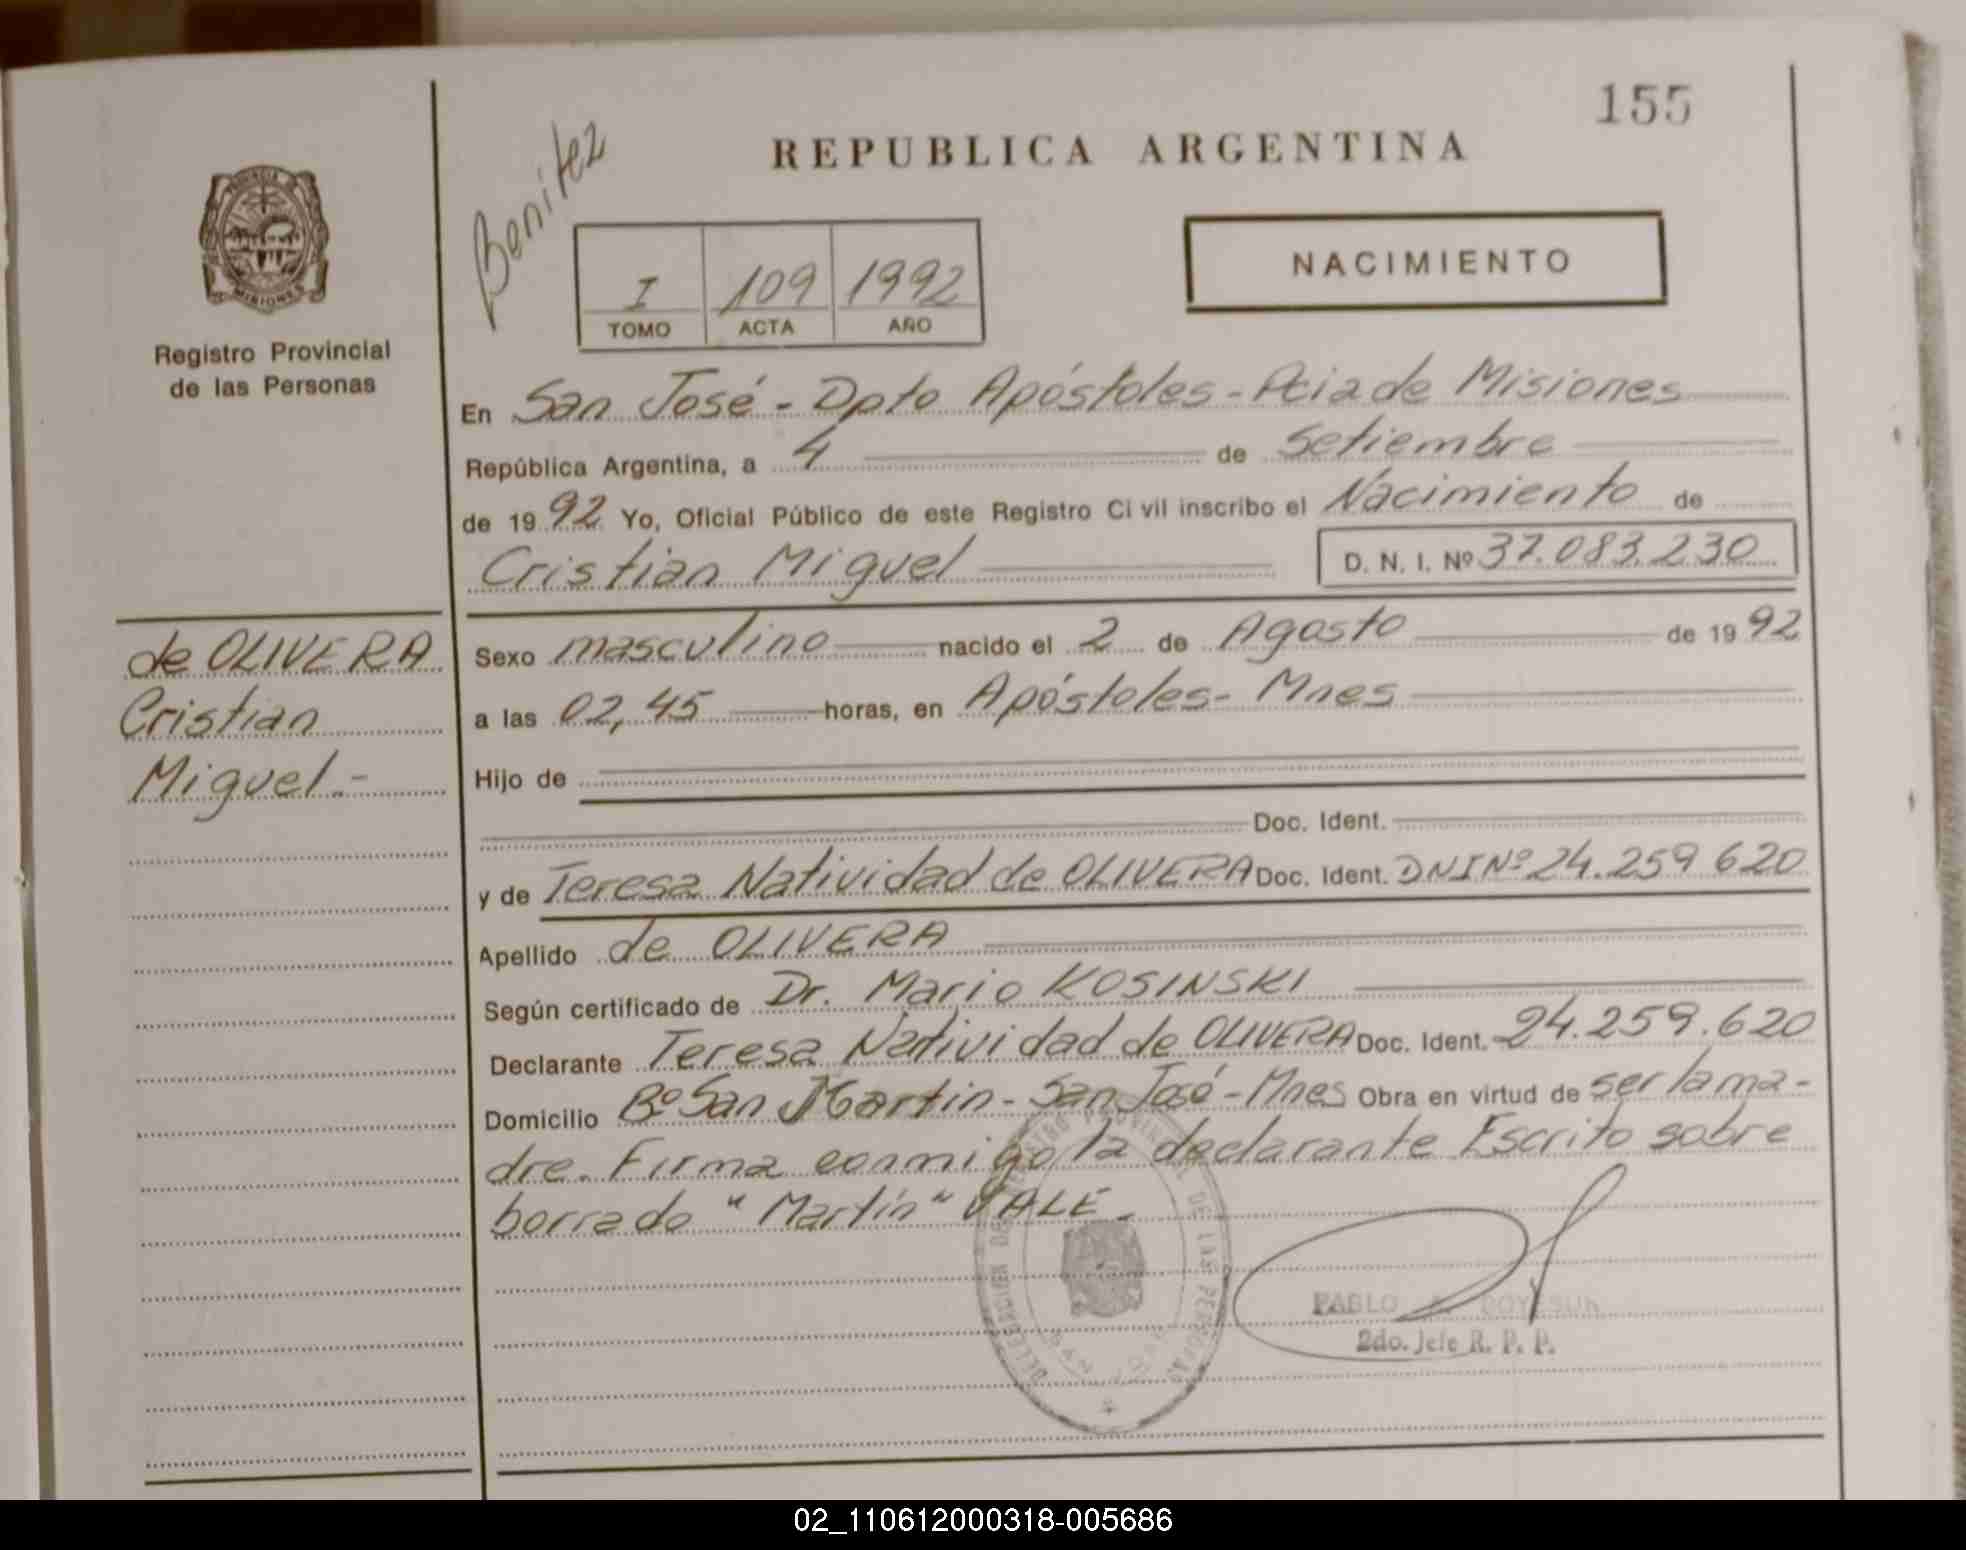 155
REPUBLICA ARGENTINA
Benitez
PROVINCIA DE
MISIONES
Registro Provincial
de las Personas
I 109 1992
TOMO ACTA AÑO
NACIMIENTO
En San José - Dpto Apóstoles - Pcia de Misiones
República Argentina, a 4 de Setiembre
de 1992 Yo, Oficial Público de este Registro Civil inscribo el Nacimiento de
Cristian Miguel D. N. I. Nº 37.083.230
de OLIVERA
Cristian
Miguel.-
Sexo masculino nacido el 2 de Agosto de 1992
a las 02,45 horas, en Apóstoles - Mnes
Hijo de
Doc. Ident.
y de Teresa Natividad de OLIVERA Doc. Ident. DNI Nº 24.259 620
Apellido de OLIVERA
Según certificado de Dr. Mario KOSINSKI
Declarante Teresa Natividad de OLIVERA Doc. Ident. 24.259.620
Domicilio Bº San Martin - San José - Mnes Obra en virtud de ser la ma-
dre. Firma conmigo la declarante Escrito sobre
borrado "Martín" VALE.
DELEGACION DEL REGISTRO PROVINCIAL DE LAS PERSONAS
SAN JOSE
PABLO
2do. Jefe R. P. P.
02_110612000318-005686